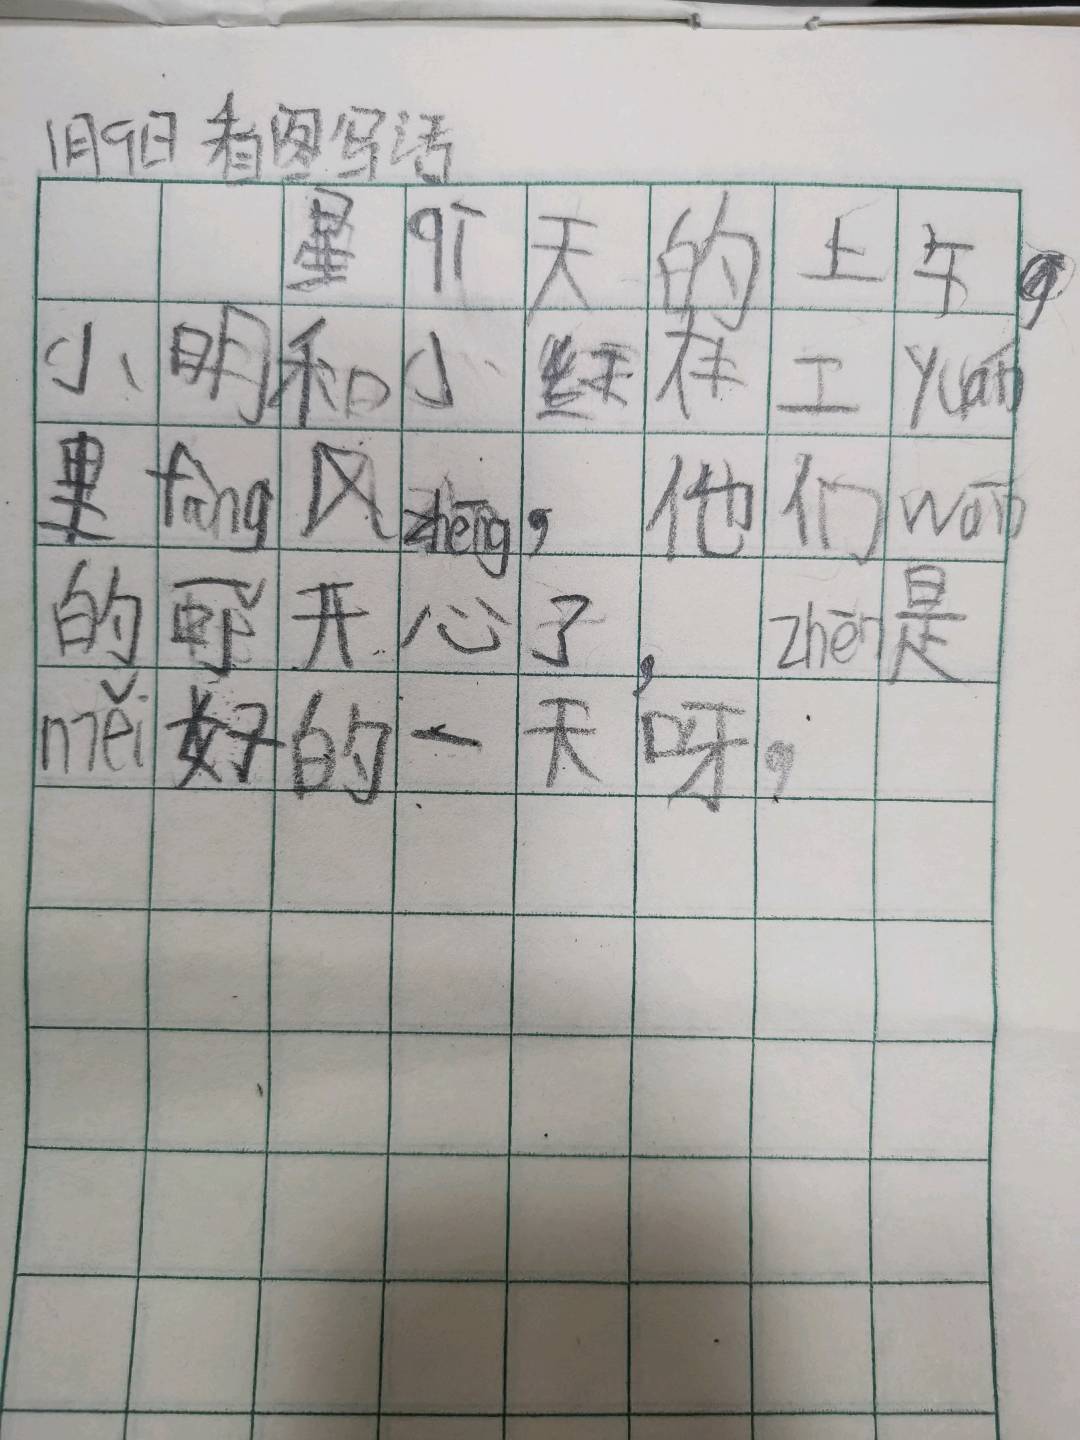 1月9日 看图写话
星qī天的上午，
小明和小红在工yuán
里fàng风zhēng，他们wán
的可开心了，zhēn是
měi好的一天呀，